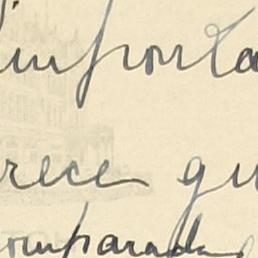 importa
rece qu
omparada